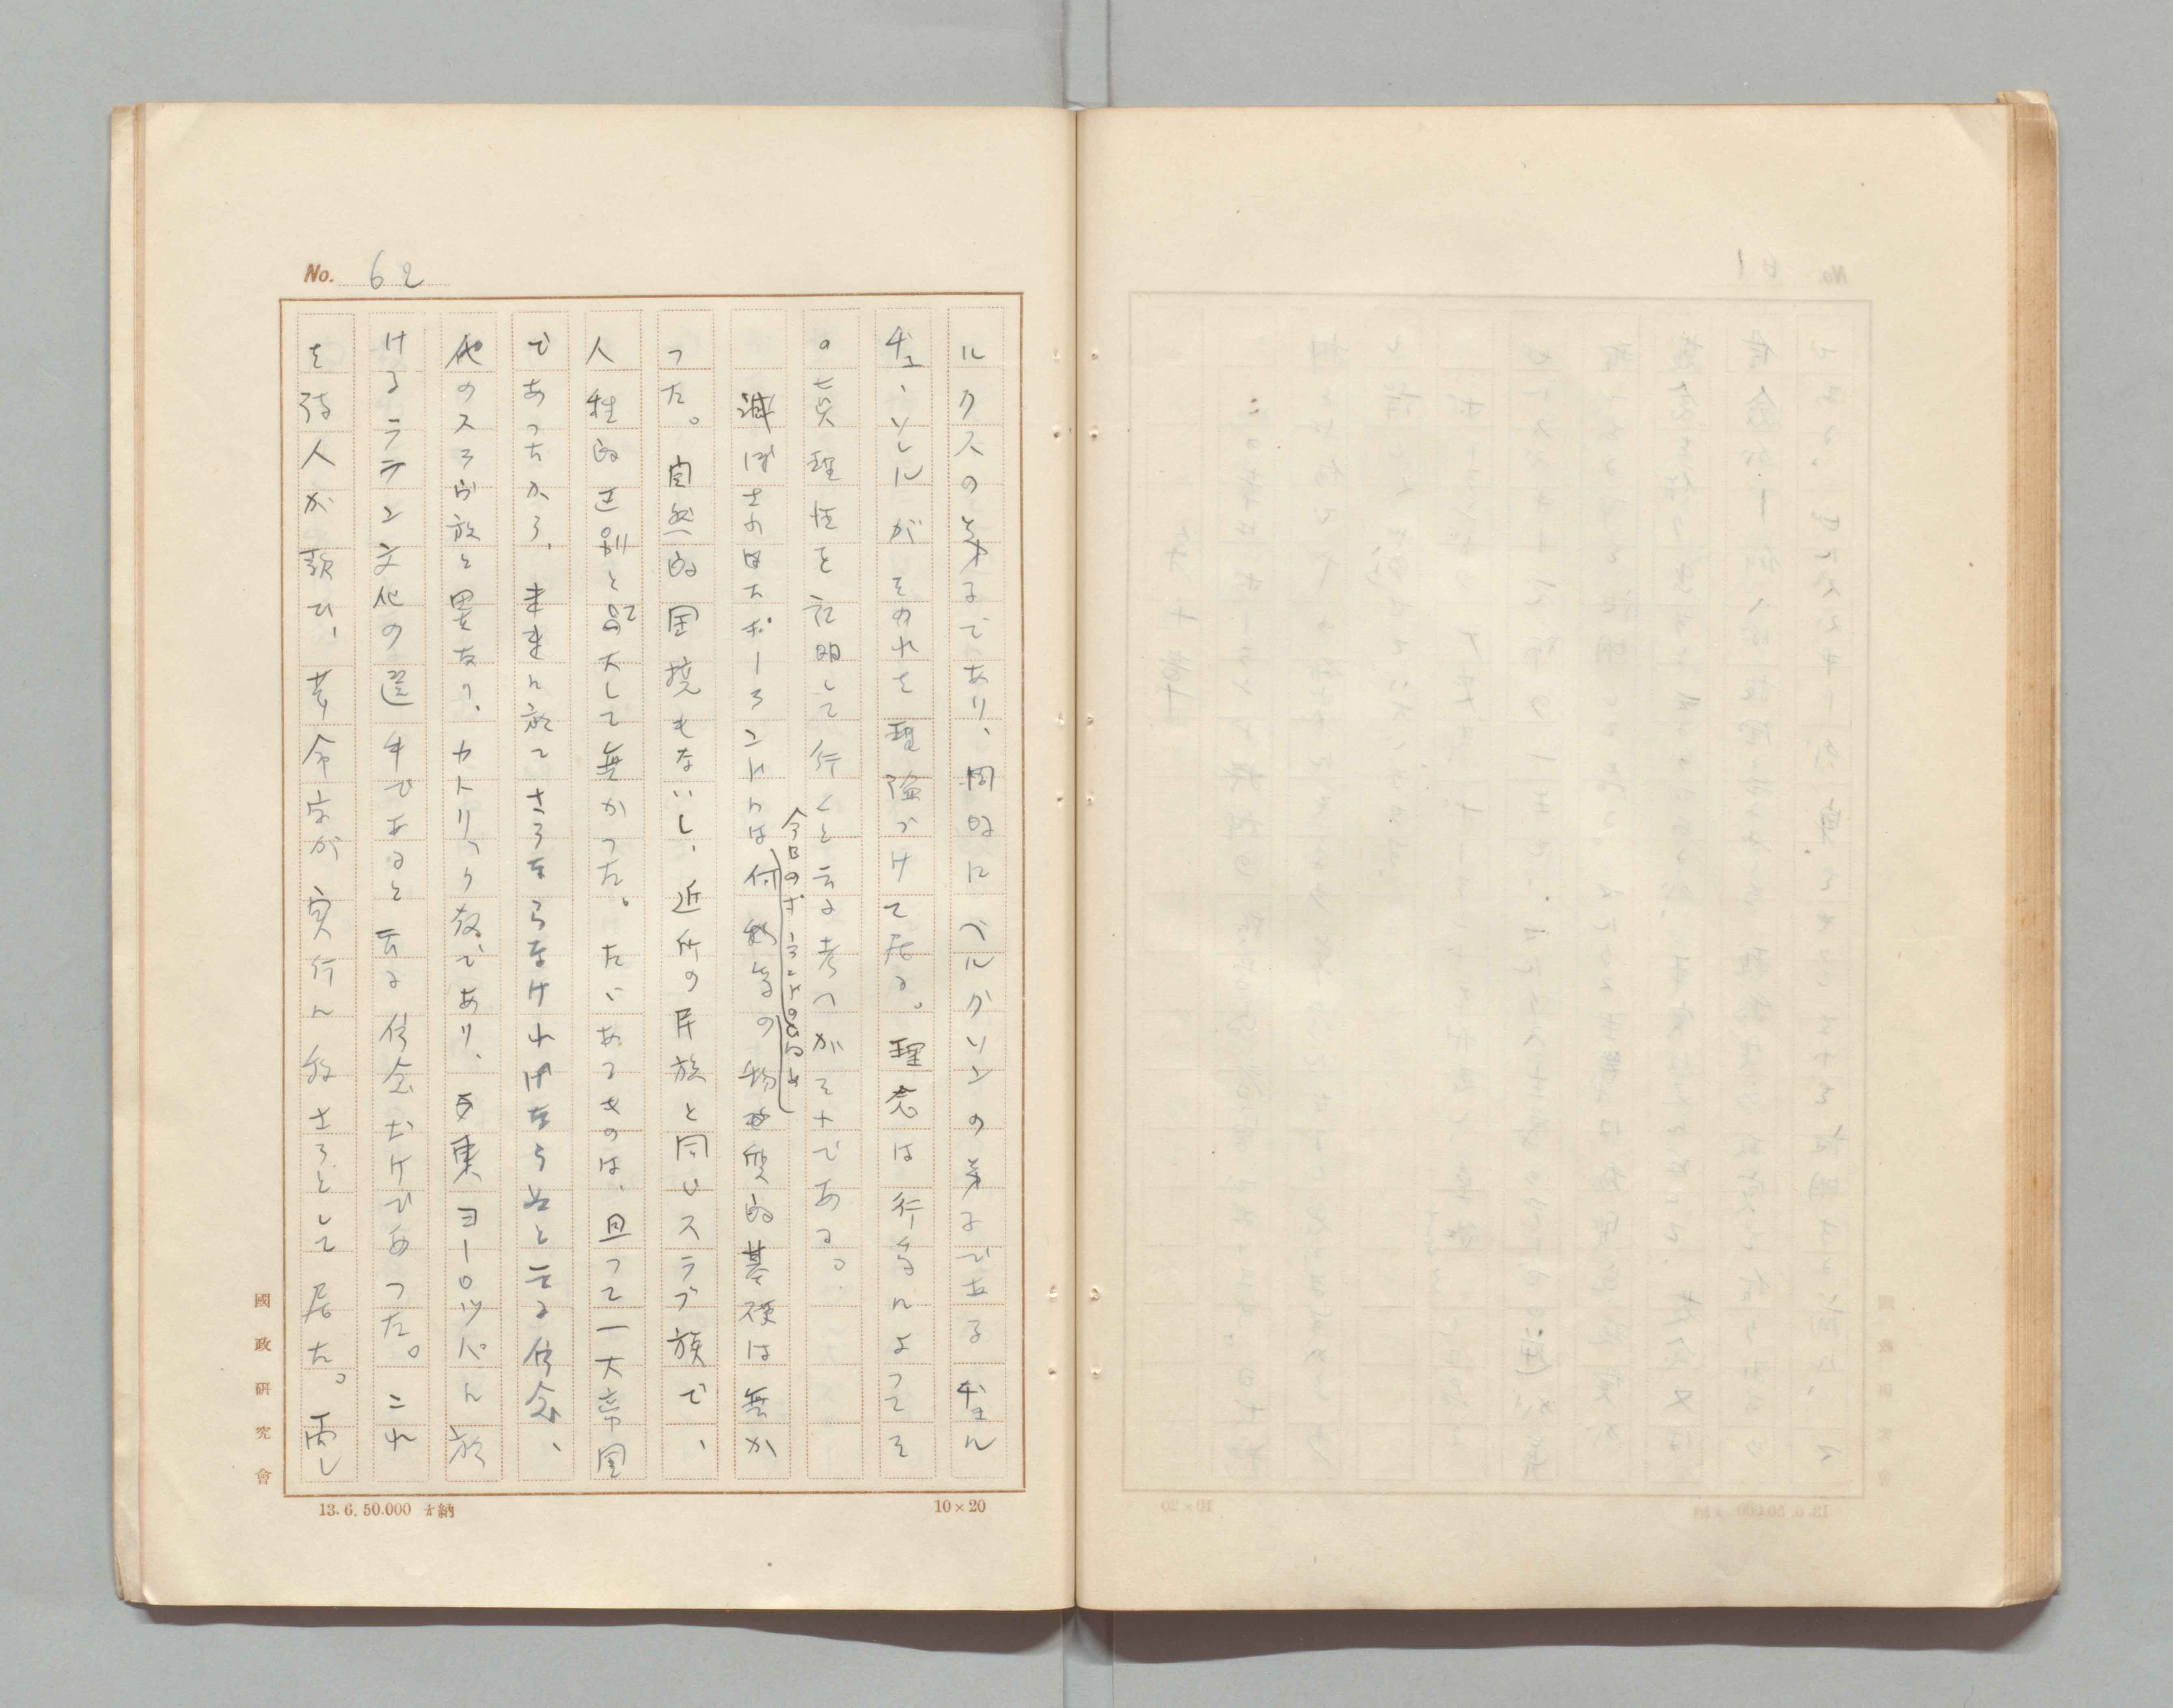 No. 62
ルクスの弟子であり、同時にベルクソンの弟子である
がそれを理論づけて居る。理念は行動によってそ
の真理性を証明して行くと云ふ考へがそれである。
滅ぼされたポーランドには何移動の物質的基礎は無か
今日のポーランドの
った。自然的国境もないし、近所の民族と同じスラブ族で、
人種的区別と大して無かった。たゞあるものは、且つて一大帝国
であったから、未来に於てさうならなければならぬと云ふ信念、
他のスラヴ族と異なり、カトリック教であり、東ヨーロッパに於
けるラテン文化の選手であると云ふ信念だけであった。これ
を詩人が歌ひ、革命家が実行に移さうとして居た。而し
國政研究會
13.6.50.000 納
10×20